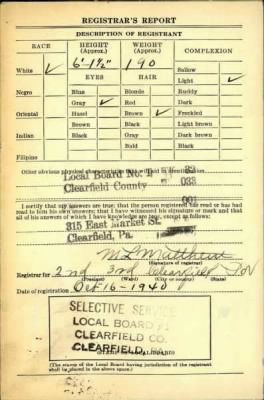 REGISTRAR'S REPORT
DESCRIPTION OF REGISTRANT
RACE HEIGHT (Approx.) WEIGHT (Approx.) COMPLEXION
White ✓ 6'-1½" 190 Sallow
EYES HAIR Light ✓
Negro Blue Blonde Ruddy
Gray ✓ Red Dark
Oriental Hazel Brown ✓ Freckled
Brown Black Light brown
Indian Black Gray Dark brown
Bald Black
Filipino
Other obvious physical characteristics that will aid in identification
Local Board No. 033
Clearfield County
I certify that my answers are true; that the person registered has read or has had
read to him his own answers; that I have witnessed his signature or mark and that
all of his answers of which I have knowledge are true, except as follows:
315 East Market St.
Clearfield, Pa.
(Signature of registrar)
Registrar for 2nd 3rd Clearfield
(Precinct) (Ward) (City or county) (State)
Date of registration Oct 16-1940
SELECTIVE
LOCAL BOARD
CLEARFIELD CO.
CLEARFIELD,
(The stamp of the Local Board having jurisdiction of the registrant
shall be placed in the above space.)